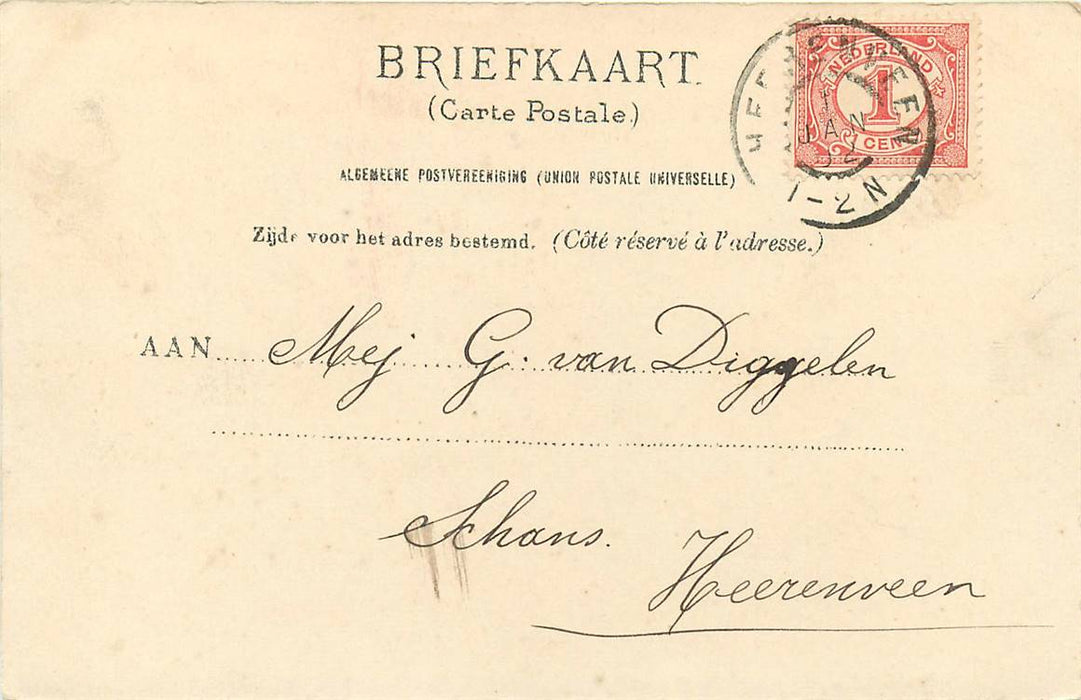 BRIEFKAART.
(Carte Postale.)
ALGEMEENE POSTVEREENIGING (UNION POSTALE UNIVERSELLE)
Zijde voor het adres bestemd. (Côté réservé à l'adresse.)
NEDERLAND
1
CENT
HEERENVEEN
JAN
1-2N
AAN Mej G. van Diggelen
Schans.
Heerenveen